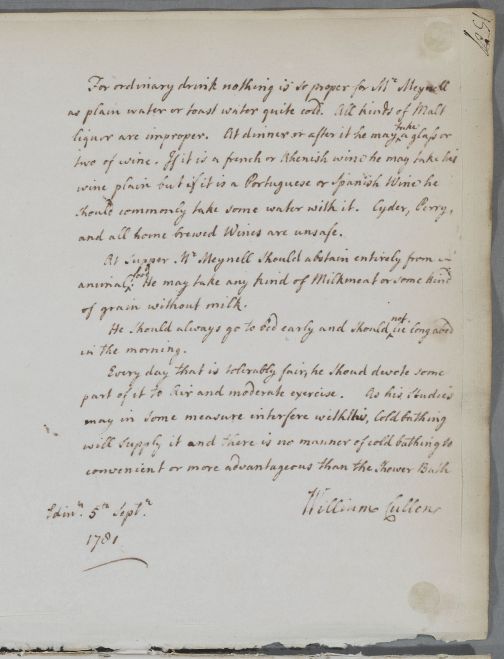 159
For ordinary drink nothing is so proper for Mr. Meynell
as plain water or toast water quite cold. All kinds of Malt
liquor are improper. At dinner or after it he may take a glass or
two of wine. If it is a french or Rhenish wine he may take his
wine plain but if it is a Portuguese or Spanish Wine he
should commonly take some water with it. Cyder, Perry,
and all home brewed Wines are unsafe.
At Supper Mr. Meynell Should abstain entirely from
animal food He may take any kind of Milkmeat or some kind
of grain without milk.
He Should always go to bed early and Should not lie long abed
in the morning.
Every day that is tolerably fair, he Shoud devote some
part of it to Air and moderate exercise. As his Studies
may in Some measure interfere with this, Cold bathing
will Supply it and there is no manner of cold bathing so
convenient or more advantageous than the Shower Bath
William Cullen
Edinr. 5th Septr.
1781